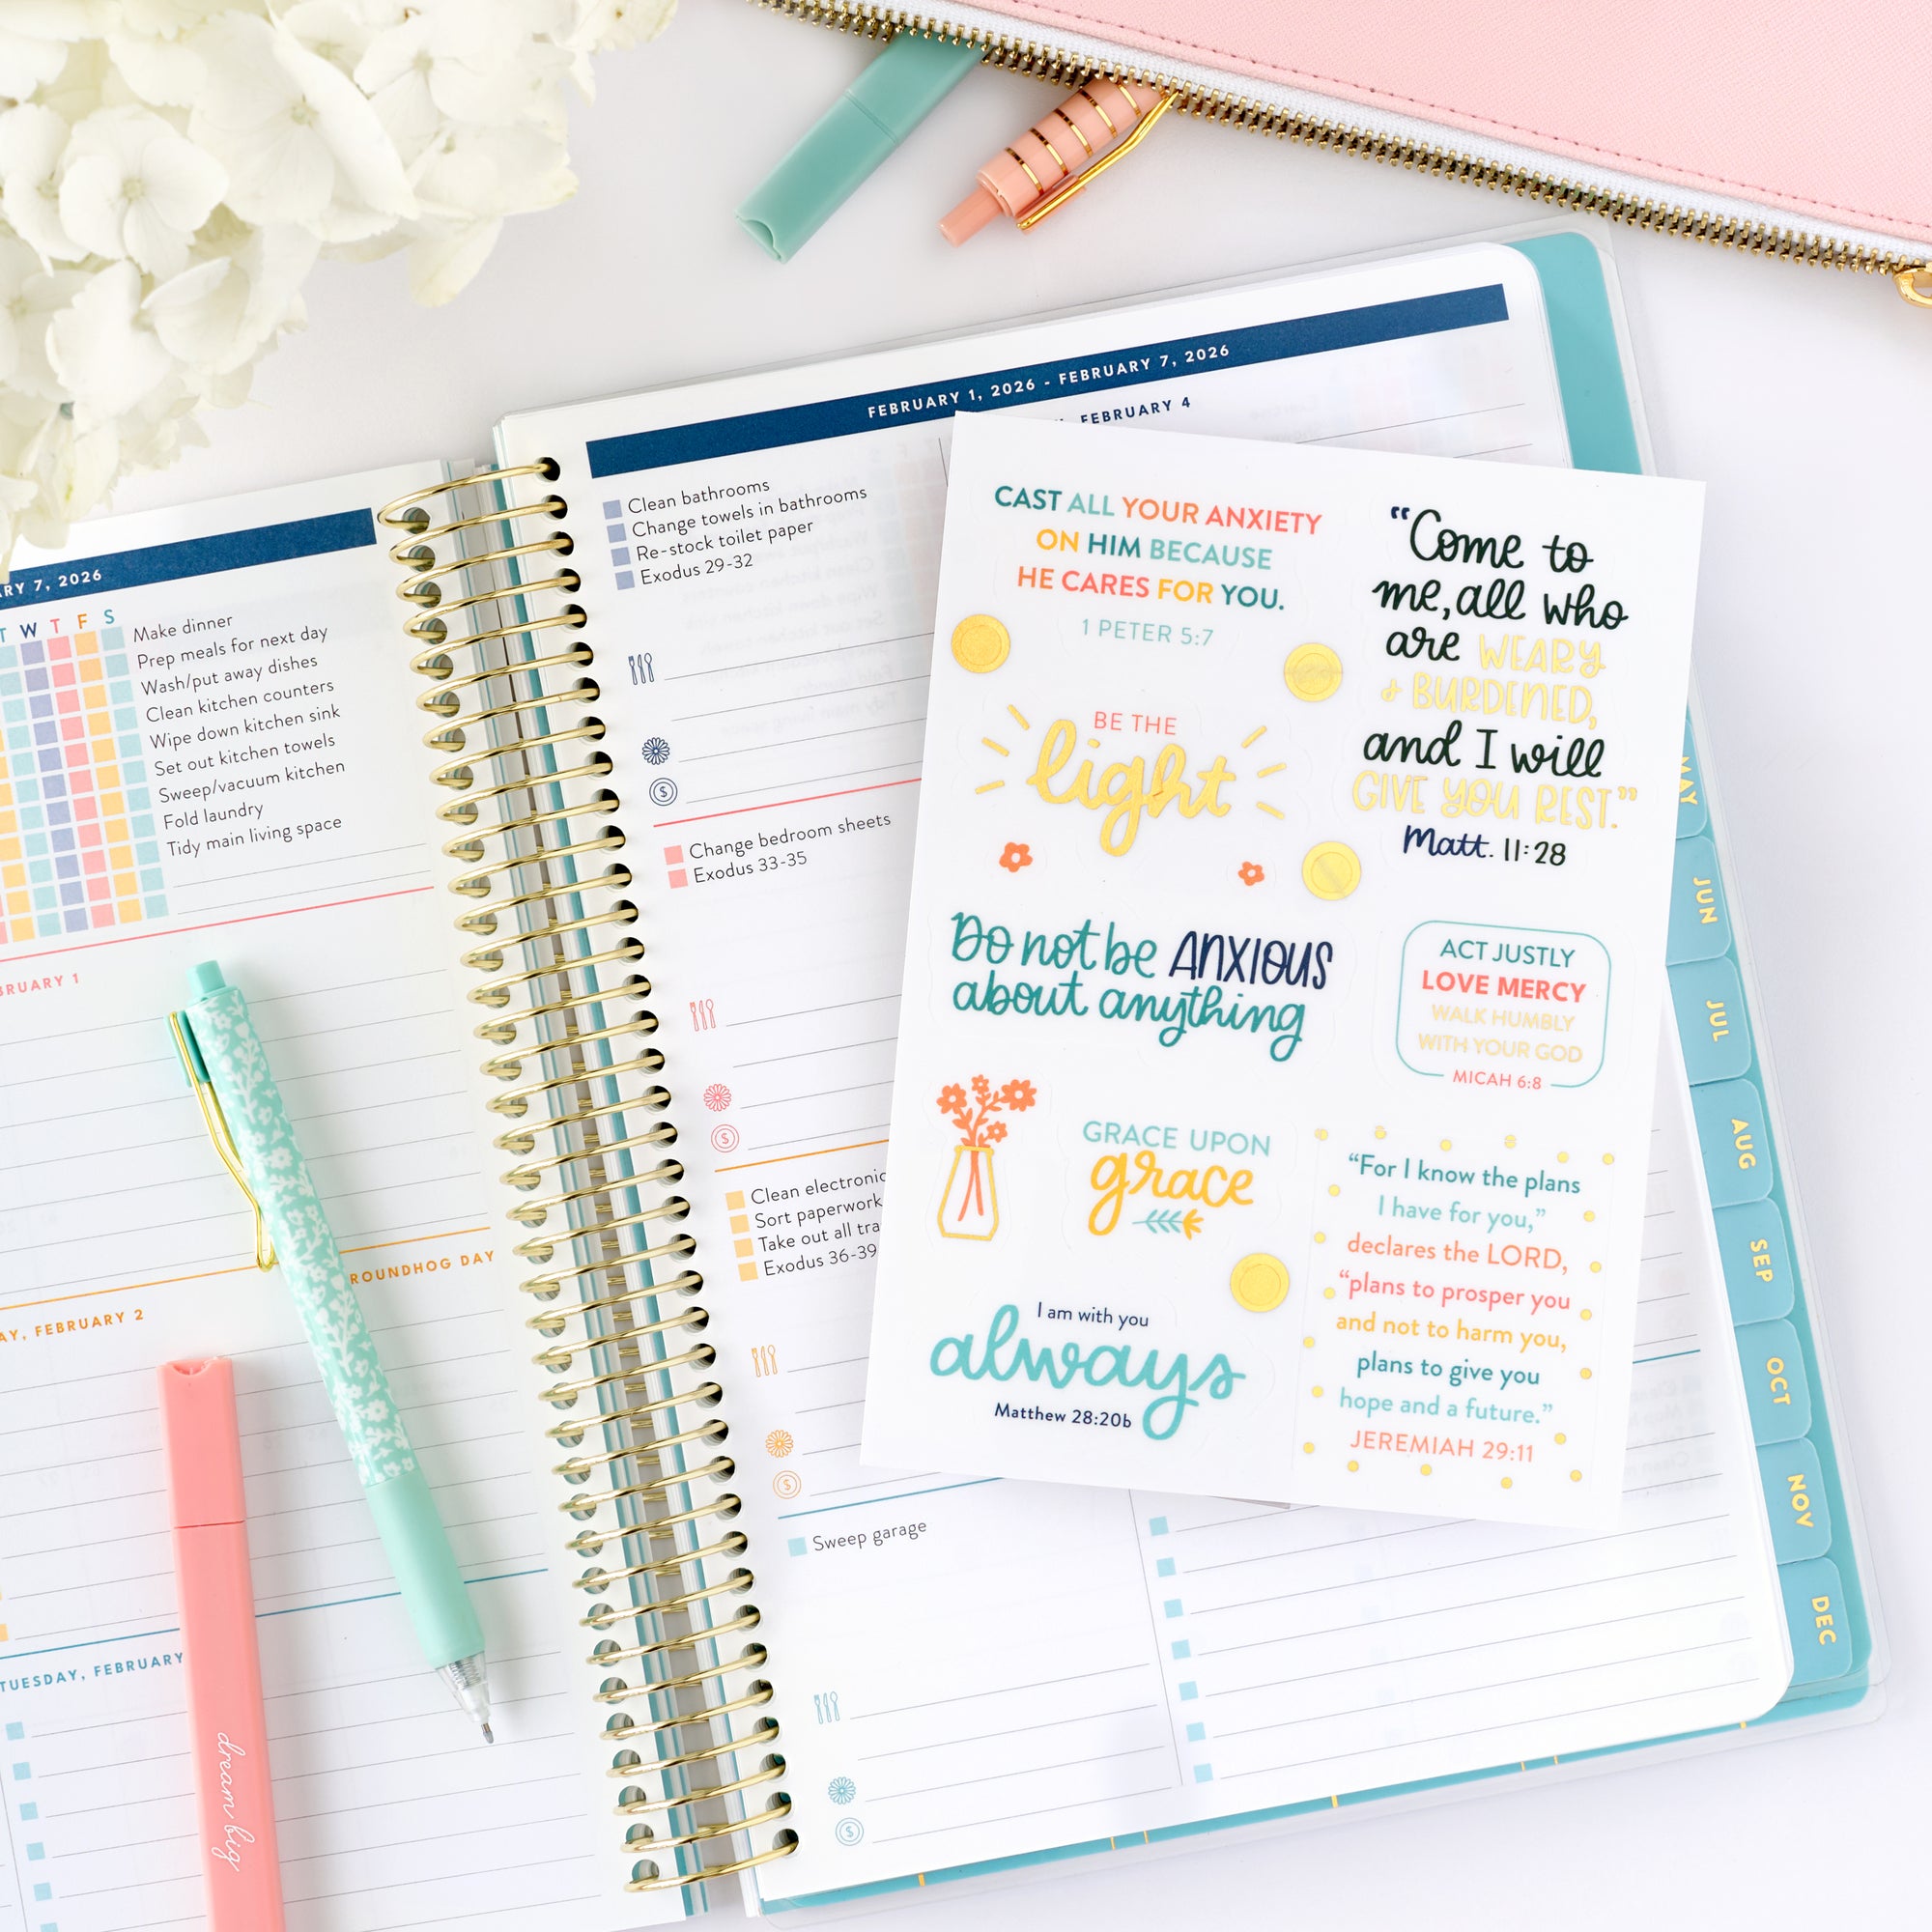 RY 7, 2026
T W T F S
Make dinner
Prep meals for next day
Wash/put away dishes
Clean kitchen counters
Wipe down kitchen sink
Set out kitchen towels
Sweep/vacuum kitchen
Fold laundry
Tidy main living space
BRUARY 1
ROUNDHOG DAY
AY, FEBRUARY 2
TUESDAY, FEBRUARY
dream big
FEBRUARY 1, 2026 - FEBRUARY 7, 2026
FEBRUARY 4
Clean bathrooms
Change towels in bathrooms
Re-stock toilet paper
Exodus 29-32
$
Change bedroom sheets
Exodus 33-35
$
Clean electronic
Sort paperwork
Take out all tra
Exodus 36-39
$
Sweep garage
$
CAST ALL YOUR ANXIETY
ON HIM BECAUSE
HE CARES FOR YOU.
1 PETER 5:7
“Come to
me, all who
are WEARY
& BURDENED,
and I will
GIVE YOU REST.”
Matt. 11:28
BE THE
light
Do not be ANXIOUS
about anything
ACT JUSTLY
LOVE MERCY
WALK HUMBLY
WITH YOUR GOD
MICAH 6:8
GRACE UPON
grace
“For I know the plans
I have for you,”
declares the LORD,
“plans to prosper you
and not to harm you,
plans to give you
hope and a future.”
JEREMIAH 29:11
I am with you
always
Matthew 28:20b
MAY
JUN
JUL
AUG
SEP
OCT
NOV
DEC